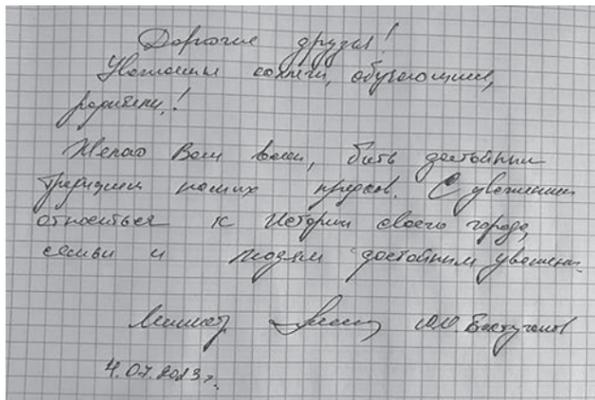 Дорогие друзья!
Уважаемые коллеги, обучающиеся,
родители!
Желаю Вам всем, быть достойными
традициям наших предков. С уважением
относиться к Истории своего города,
семьи и людям достойным уважения.
Министр Ю.М.
4.07.2023г.